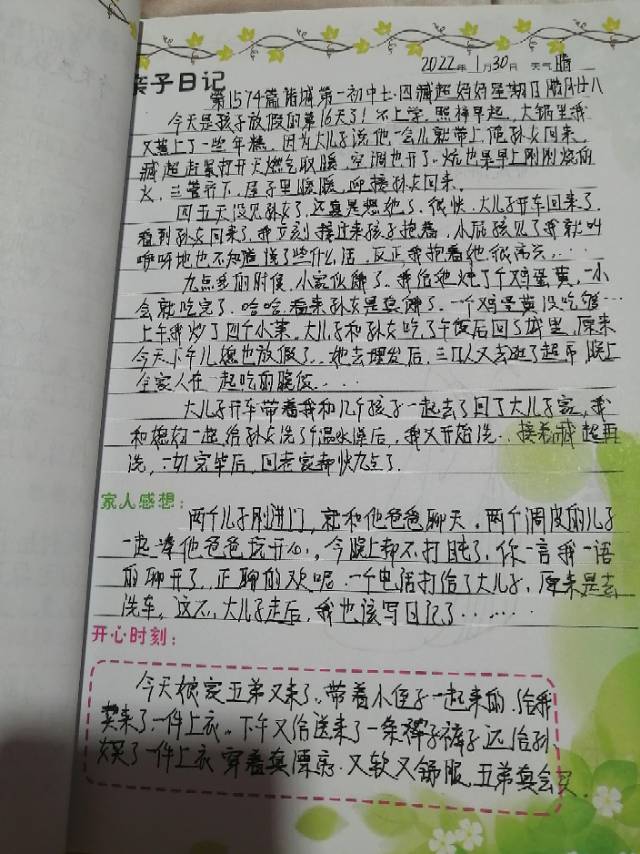 2022年1月30日 天气晴
亲子日记
第1574篇诸城第一初中七·四臧超好好星期日腊月廿八
今天是孩子放假的第16天了!不上学,照样早起,大锅里我
又蒸上了一些年糕,因为大儿子说他一会儿就带上俺孙女回来,
臧超赶紧打开天燃气取暖,空调也开了,炕也是早上刚刚烧的
火,三管齐下,屋子里暖暖,迎接孙女回来。
四五天没见孙女了,还真是想她了。很快,大儿子开车回来了,
看到孙女回来了,我立刻接过来孩子抱着,小屁孩见了我就叫
咿呀地也不知道说了些什么话,反正我抱着她很高兴,…
九点多的时候,小家伙饿了,我给她炖了个鸡蛋黄,一小
会就吃完了,哈哈,看来孙女是真饿了,一个鸡蛋黄没吃够…
上午我炒了四个小菜,大儿子和孙女吃了午饭后回了城里,原来
今天下午儿媳也放假了,她去理发后,三口人又去逛了超市,晚上
全家人在一起吃的晚饭….
大儿子开车带着我和几个孩子一起去了回了大儿子家,我
和媳妇一起给孙女洗了个温水澡后,我又开始洗,接着臧超再
洗,一切完毕后,回老家都快九点了.
家人感想:
两个儿子刚进门,就和他爸爸聊天,两个调皮的儿子
一起逗他爸爸玩开心,今晚上都不打盹了,你一言我一语
的聊开了,正聊的欢呢,一个电话打给了大儿子,原来是去
洗车,这不,大儿子走后,我也该写日记了……
开心时刻:
今天娘家五弟又来了,带着小侄子一起来的,给我
买来了一件上衣。下午又给送来了一条裤子裤子还给孙
女买了一件上衣穿着真漂亮,又软又舒服,五弟真会买.